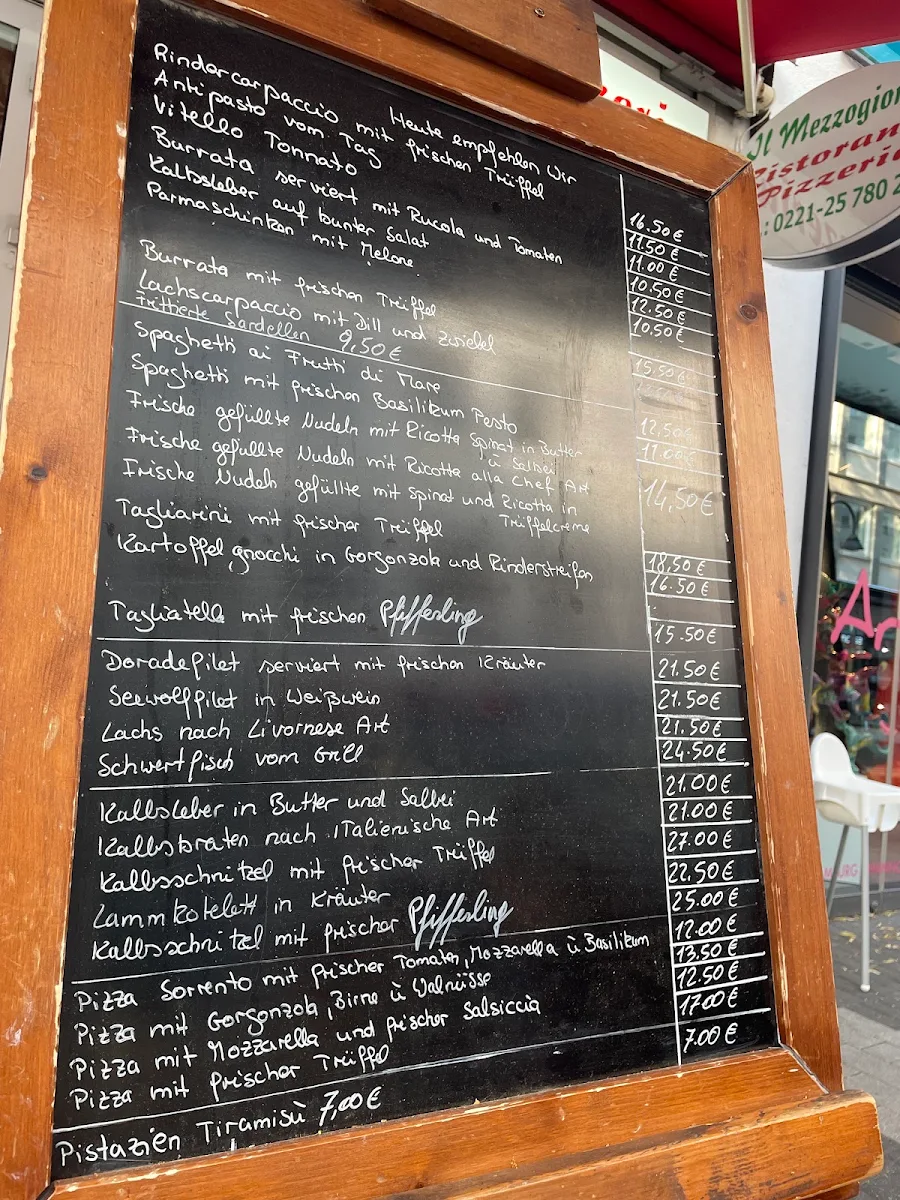 Heute empfehlen wir
Rindercarpaccio mit frischen Trüffel 16.50€
Antipasto vom Tag 11.50€
Vitello Tonnato 11.00€
Burrata serviert mit Rucola und Tomaten 10.50€
Kalbsleber auf bunter Salat 12.50€
Parmaschinken mit Melone 10.50€
Burrata mit frischen Trüffel 15.50€
Lachscarpaccio mit Dill und zwiebel
Frittierte Sardellen 9,50€
Spaghetti ai Frutti di Mare 12,50€
Spaghetti mit frischen Basilikum Pesto 11.00€
Frische gefüllte Nudeln mit Ricotta Spinat in Butter
ü Salbei
Frische gefüllte Nudeln mit Ricotta alla Chef Art 14,50€
Frische Nudeln gefüllte mit spinat und Ricotta in
Trüffelcreme
Tagliarini mit frischer Trüffel 18,50€
Kartoffelgnocchi in Gorgonzola und Rinderstreifen 16.50€
Tagliatella mit frischen Pfifferling 15.50€
Doradefilet serviert mit frischen Kräuter 21.50€
Seewolffilet in Weißwein 21.50€
Lachs nach Livornese Art 21.50€
Schwertfisch vom Grill 24.50€
Kalbsleber in Butter und Salbei 21.00€
Kalbsbraten nach ITalienische Art 21.00€
Kalbsschnitzel mit frischer Trüffel 27.00€
Lammkotelett in Kräuter 22.50€
Kalbsschnitzel mit frischer Pfifferling 25.00€
Pizza Sorrento mit frischer Tomaten, Mozzarella ü Basilikum 12.00€
Pizza mit Gorgonzola, Birne ü Walnüsse 13.50€
Pizza mit Mozzarella und frischer Salsiccia 12.50€
Pizza mit frischer Trüffel 17.00€
Pistazien Tiramisù 7,00€ 7.00€
Il Mezzogior
Ristoran
Pizzeria
: 0221-25 780 2
Ar